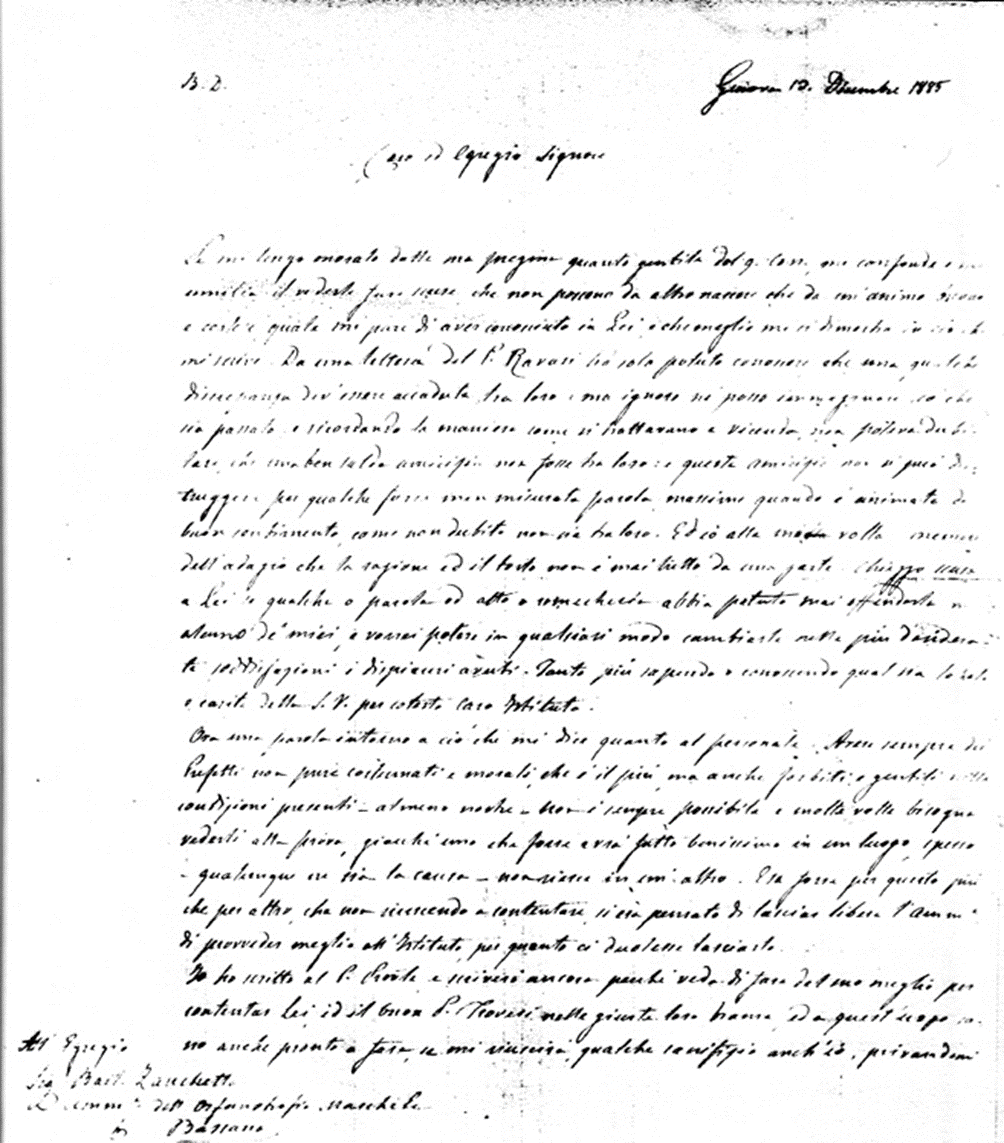 B. D.
Genova 12. Dicembre 1885
Caro ed Egregio Signore
Se mi tengo onorato della sua pregma quanto gentile del 9. Corr. me confonde e
umilia il vederla fare scuse che non possono da altro nascere che da un'animo buono
e cortese quale mi pare di aver conosciuto in Lei e che meglio mi si dimostra in ciò che
mi scrive. Da una lettera del P. Ravasi hò solo potuto conoscere che una qualche
discrepanza dev'essere accaduta tra loro: ma ignoro nè posso immaginare ciò che
sia passato e ricordando la maniera come si trattavano a vicenda, non poteva dubi-
tare, che una ben salda amicizia non fosse tra loro: e questa amicizia non si può dis-
truggere per qualche forse men misurata parola, massime quando è animata da
buon sentimento, come non dubito non sia tra loro. Ed io alla mia volta memore
dell'adagio che la ragione ed il torto non è mai tutto da una parte chieggo scusa
a Lei se qualche o parola od atto o comechesia abbia potuto mai offenderla
alcuno de' miei, e vorrei potere in qualsiasi modo cambiarle nelle più desidera-
te soddisfazioni i dispiaceri avuti. Tanto più sapendo e conoscendo qual sia lo zelo
e carità della S. V. per cotesto caro Istituto.
Ora una parola intorno a ciò che mi dice quanto al personale. Avere sempre dei
Prefetti non pure costumati e morali, che è il più, ma anche forbiti e gentili nelle
condizioni presenti – almeno nostre – non è sempre possibile e molte volte bisogna
vederli alla prova, giacchè uno che forse avrà fatto benissimo in un luogo, spesso
– qualunque ne sia la causa – non riesce in un'altro. Era forse per questo più
che per altro, che non riuscendo a contentare si era pensato di lasciar libera l'Amm.ne
di provveder meglio all'Istituto, per quanto ci dolesse lasciarlo.
Io ho scritto al P. e scriverò ancora perchè veda di fare del suo meglio per
contentar Lei, ed il buon P. nelle giuste loro brame, ed a quest'scopo so-
no anche pronto a fare, se mi riuscirà, qualche sacrifizio anch'io, privandomi
All' Egregio
Sig. Bart. Zanchetta
D Amm.e dell' Orfanotrofio Maschile
in Bassano